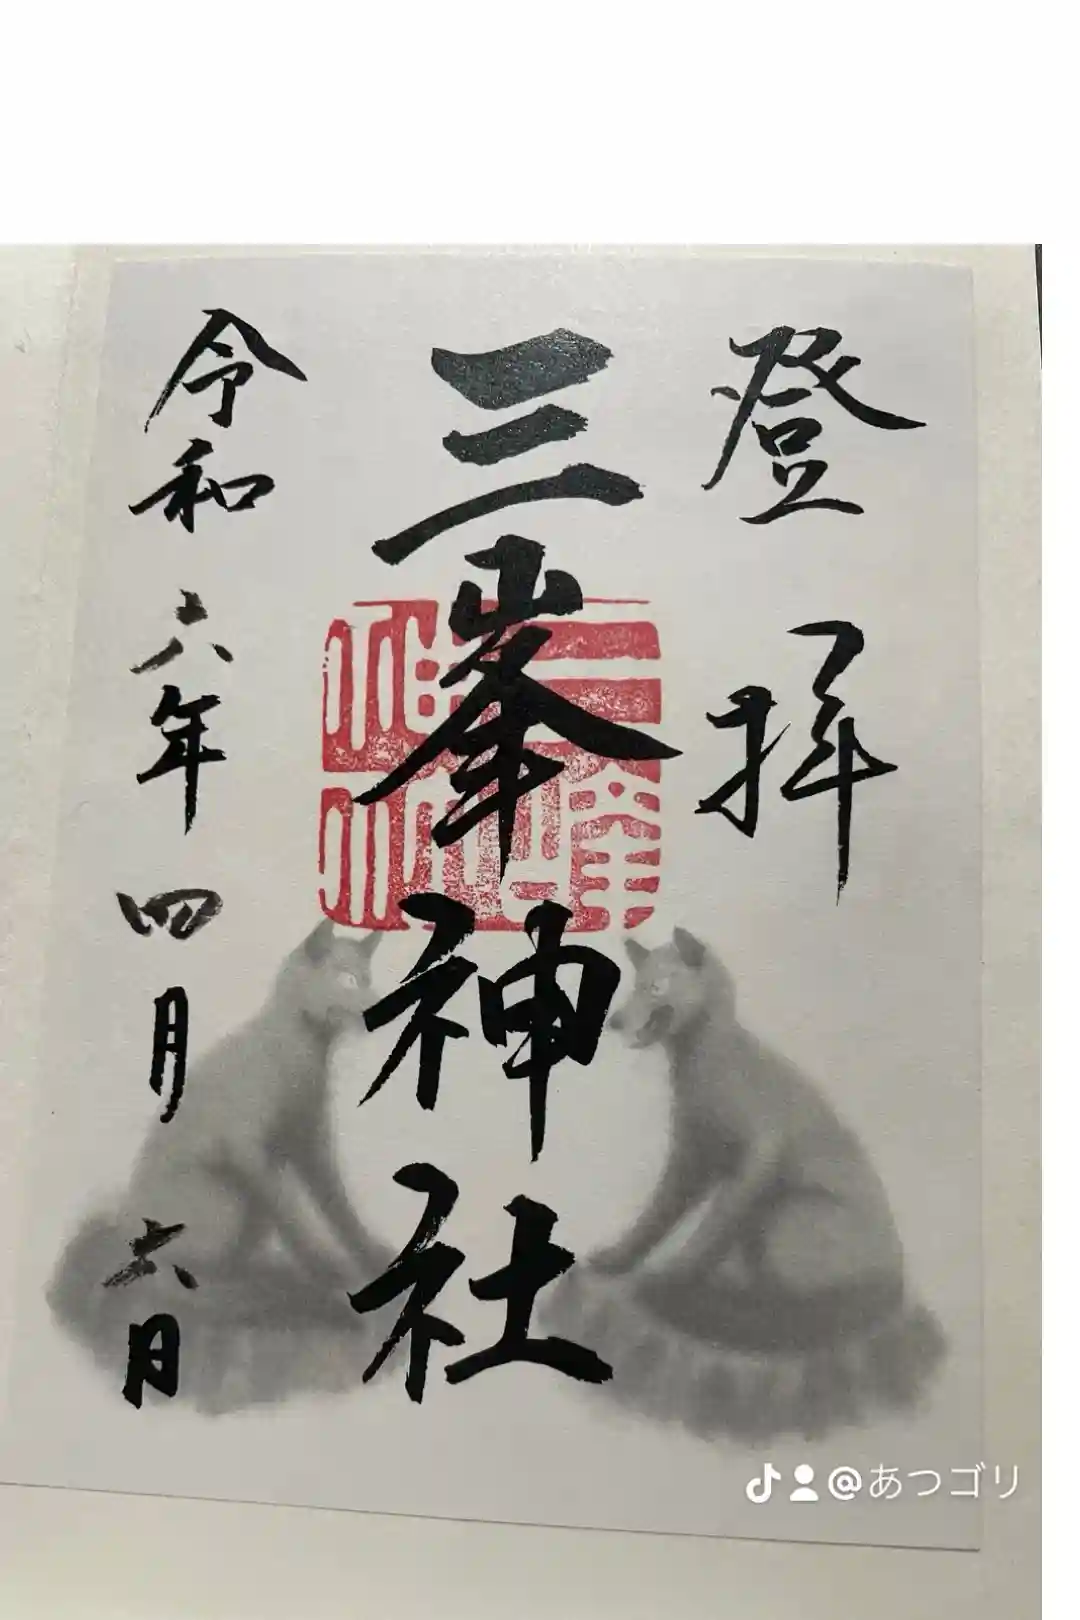 登拝
三峯神社
三峰神社
令和六年四月六日
@あつゴリ